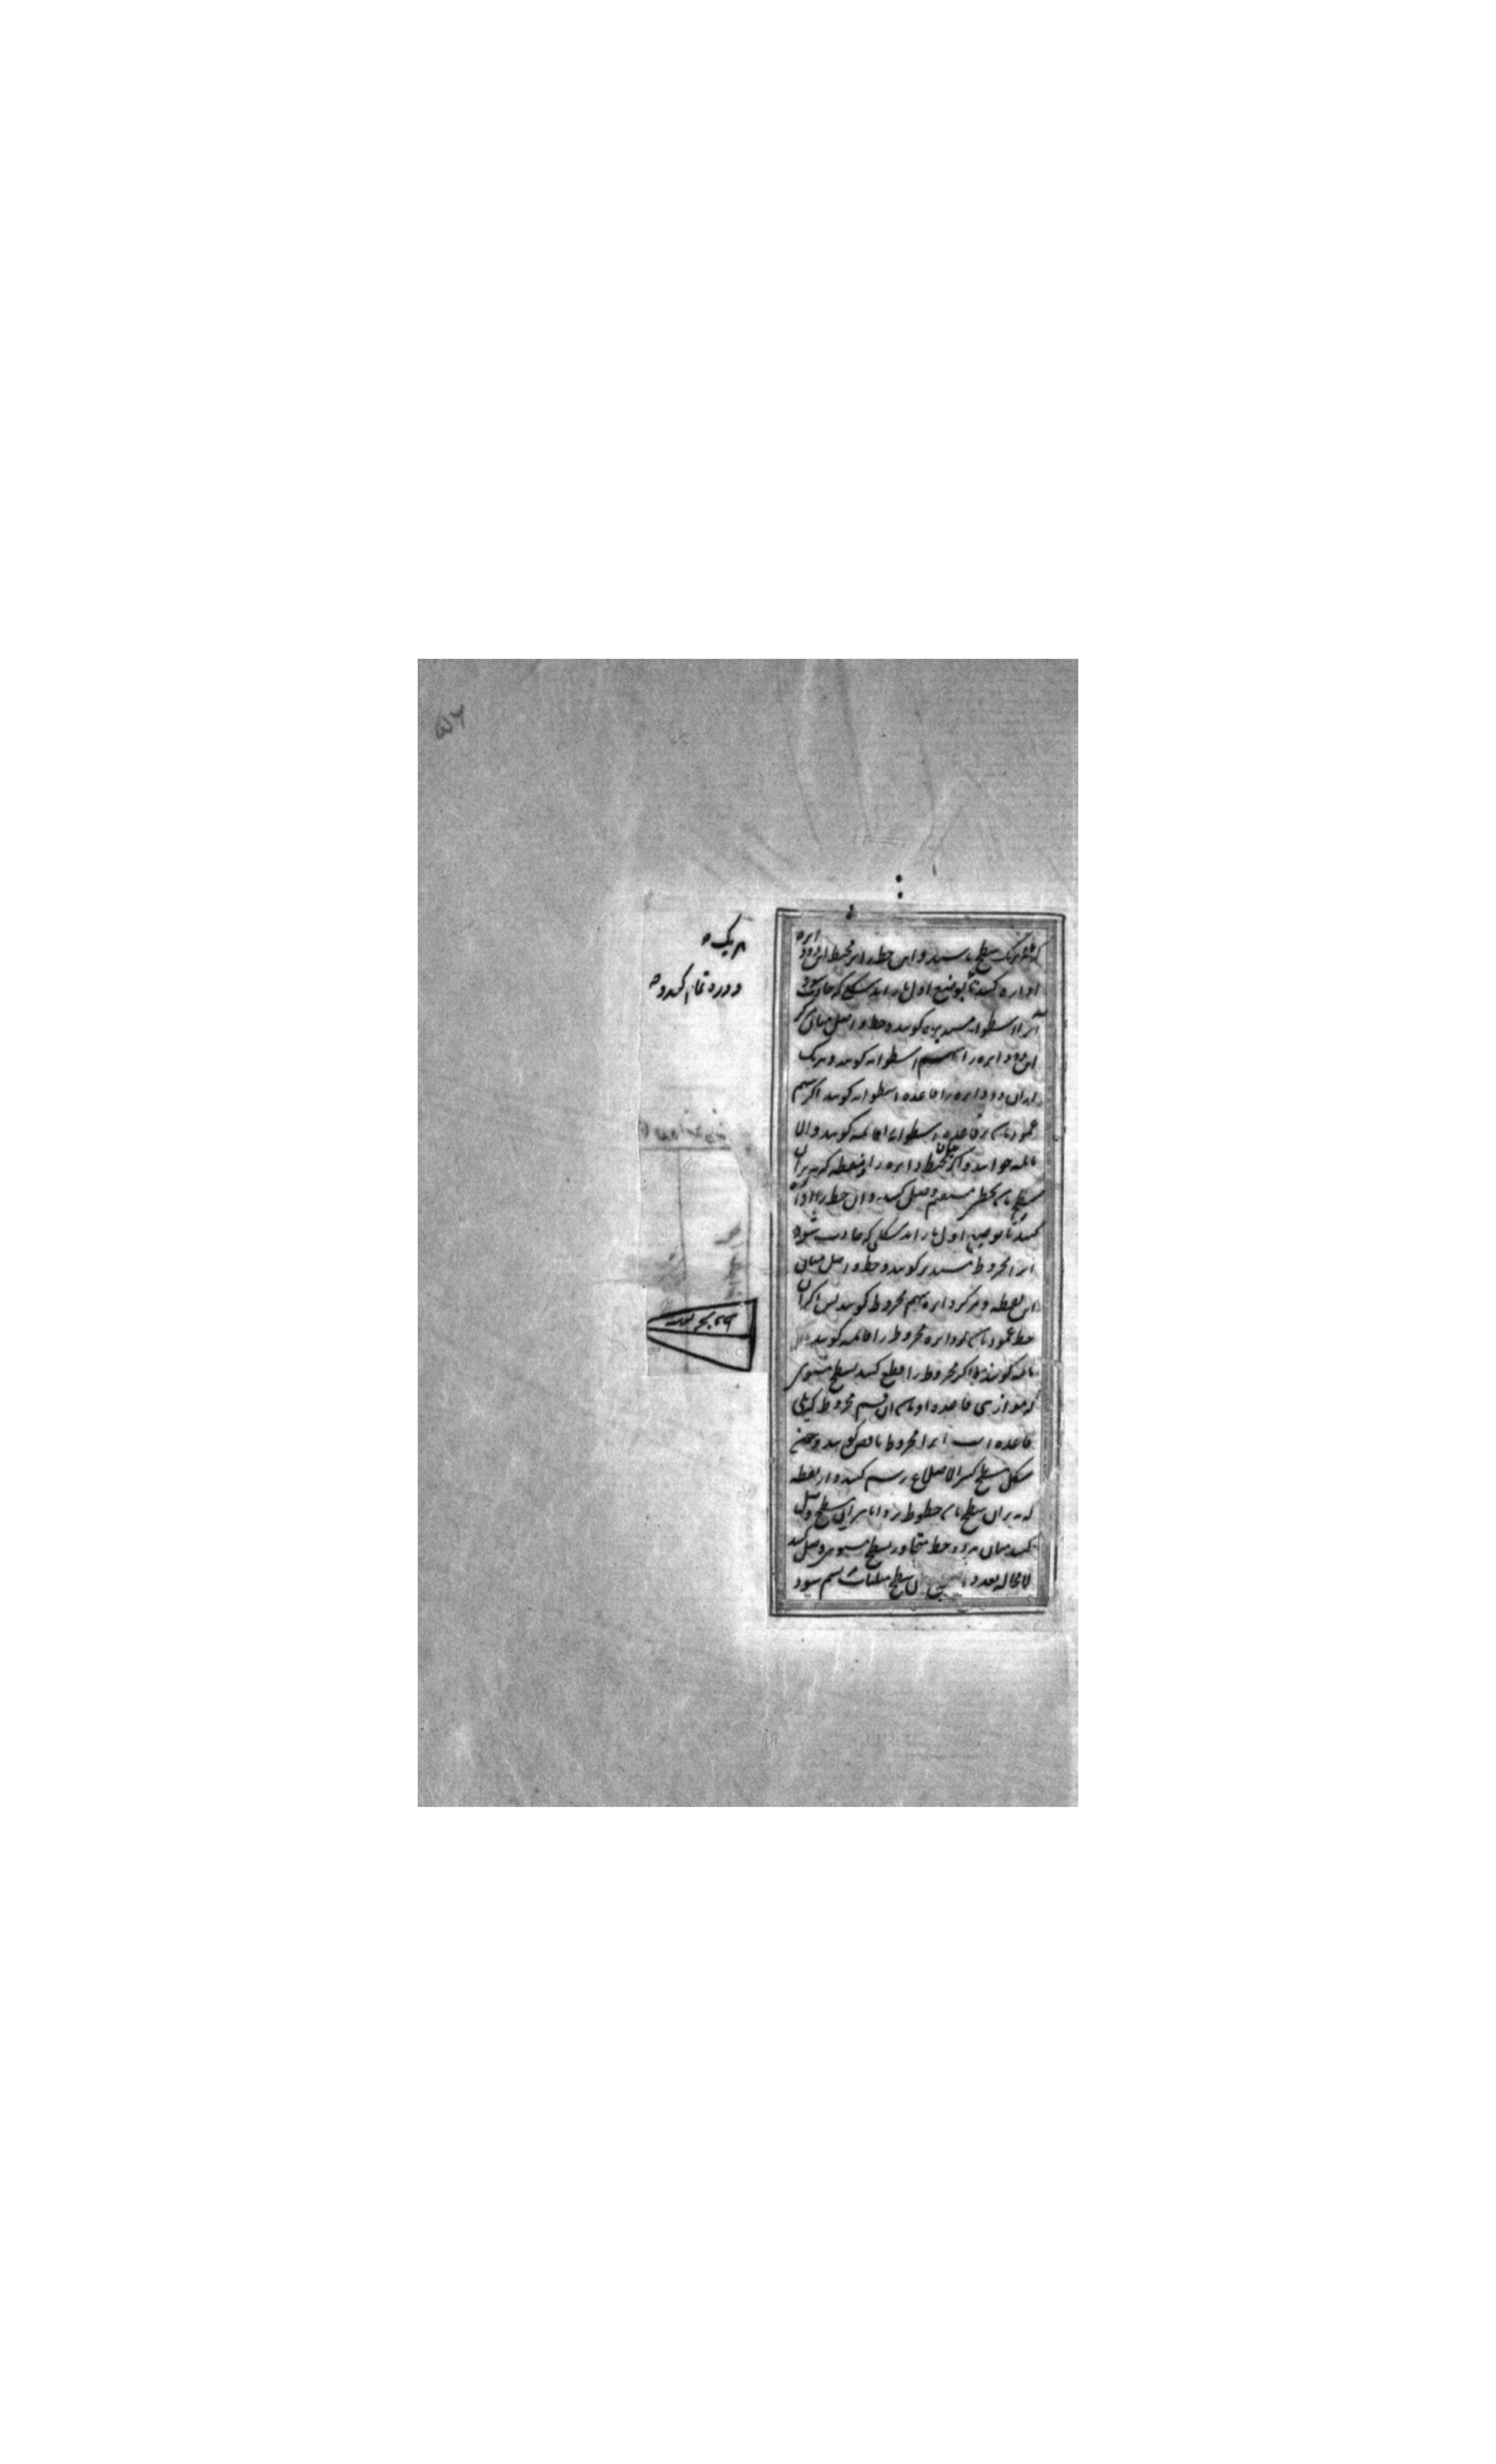 که هر یک سطح باشند و این خط را بر محیط این دو دایره
اداره کنند تا بوضع اول باز اید شکلی که حادث شود
آنرا اسطوانه مستدیره گویند و خط واصل میان مرکز
این دو دایره را سهم اسطوانه گویند و هر یک
از ان دو دایره را قاعده اسطوانه گویند اگر سهم
عمود باشد بر قاعده اسطوانه را قائمه گویند والا
مائله خوانند و اگر میان محیط دایره و نقطه که نه بران
سطح باشد بخطی مستقیم وصل کنند و ان خط را اداره
کنند تا بوضع اول باز اید شکلی که حادث شود
انرا مخروط مستدیر گویند و خط واصل میان
این نقطه و مرکز دایره سهم مخروط گویند پس اگر ان
خط عمود باشد بر دایره مخروط را قائمه گویند والا
مائله گویند و اگر مخروط را قطع کنند بسطح مستوی
که موازی قاعده او باشد ان قسم مخروط که یلی
قاعده است انرا مخروط ناقص گویند و چون
شکل مسطح کثیر الاضلاع رسم کنند و از نقطه
که نه بران سطح باشد خطوط بزوایا این سطح وصل
کنند میان هر دو خط متجاور بسطح مستوی وصل کنند
لا محاله بعدد سطح مثلثات مرتسم شود
هر یک
دوره تمام کند
۵۶